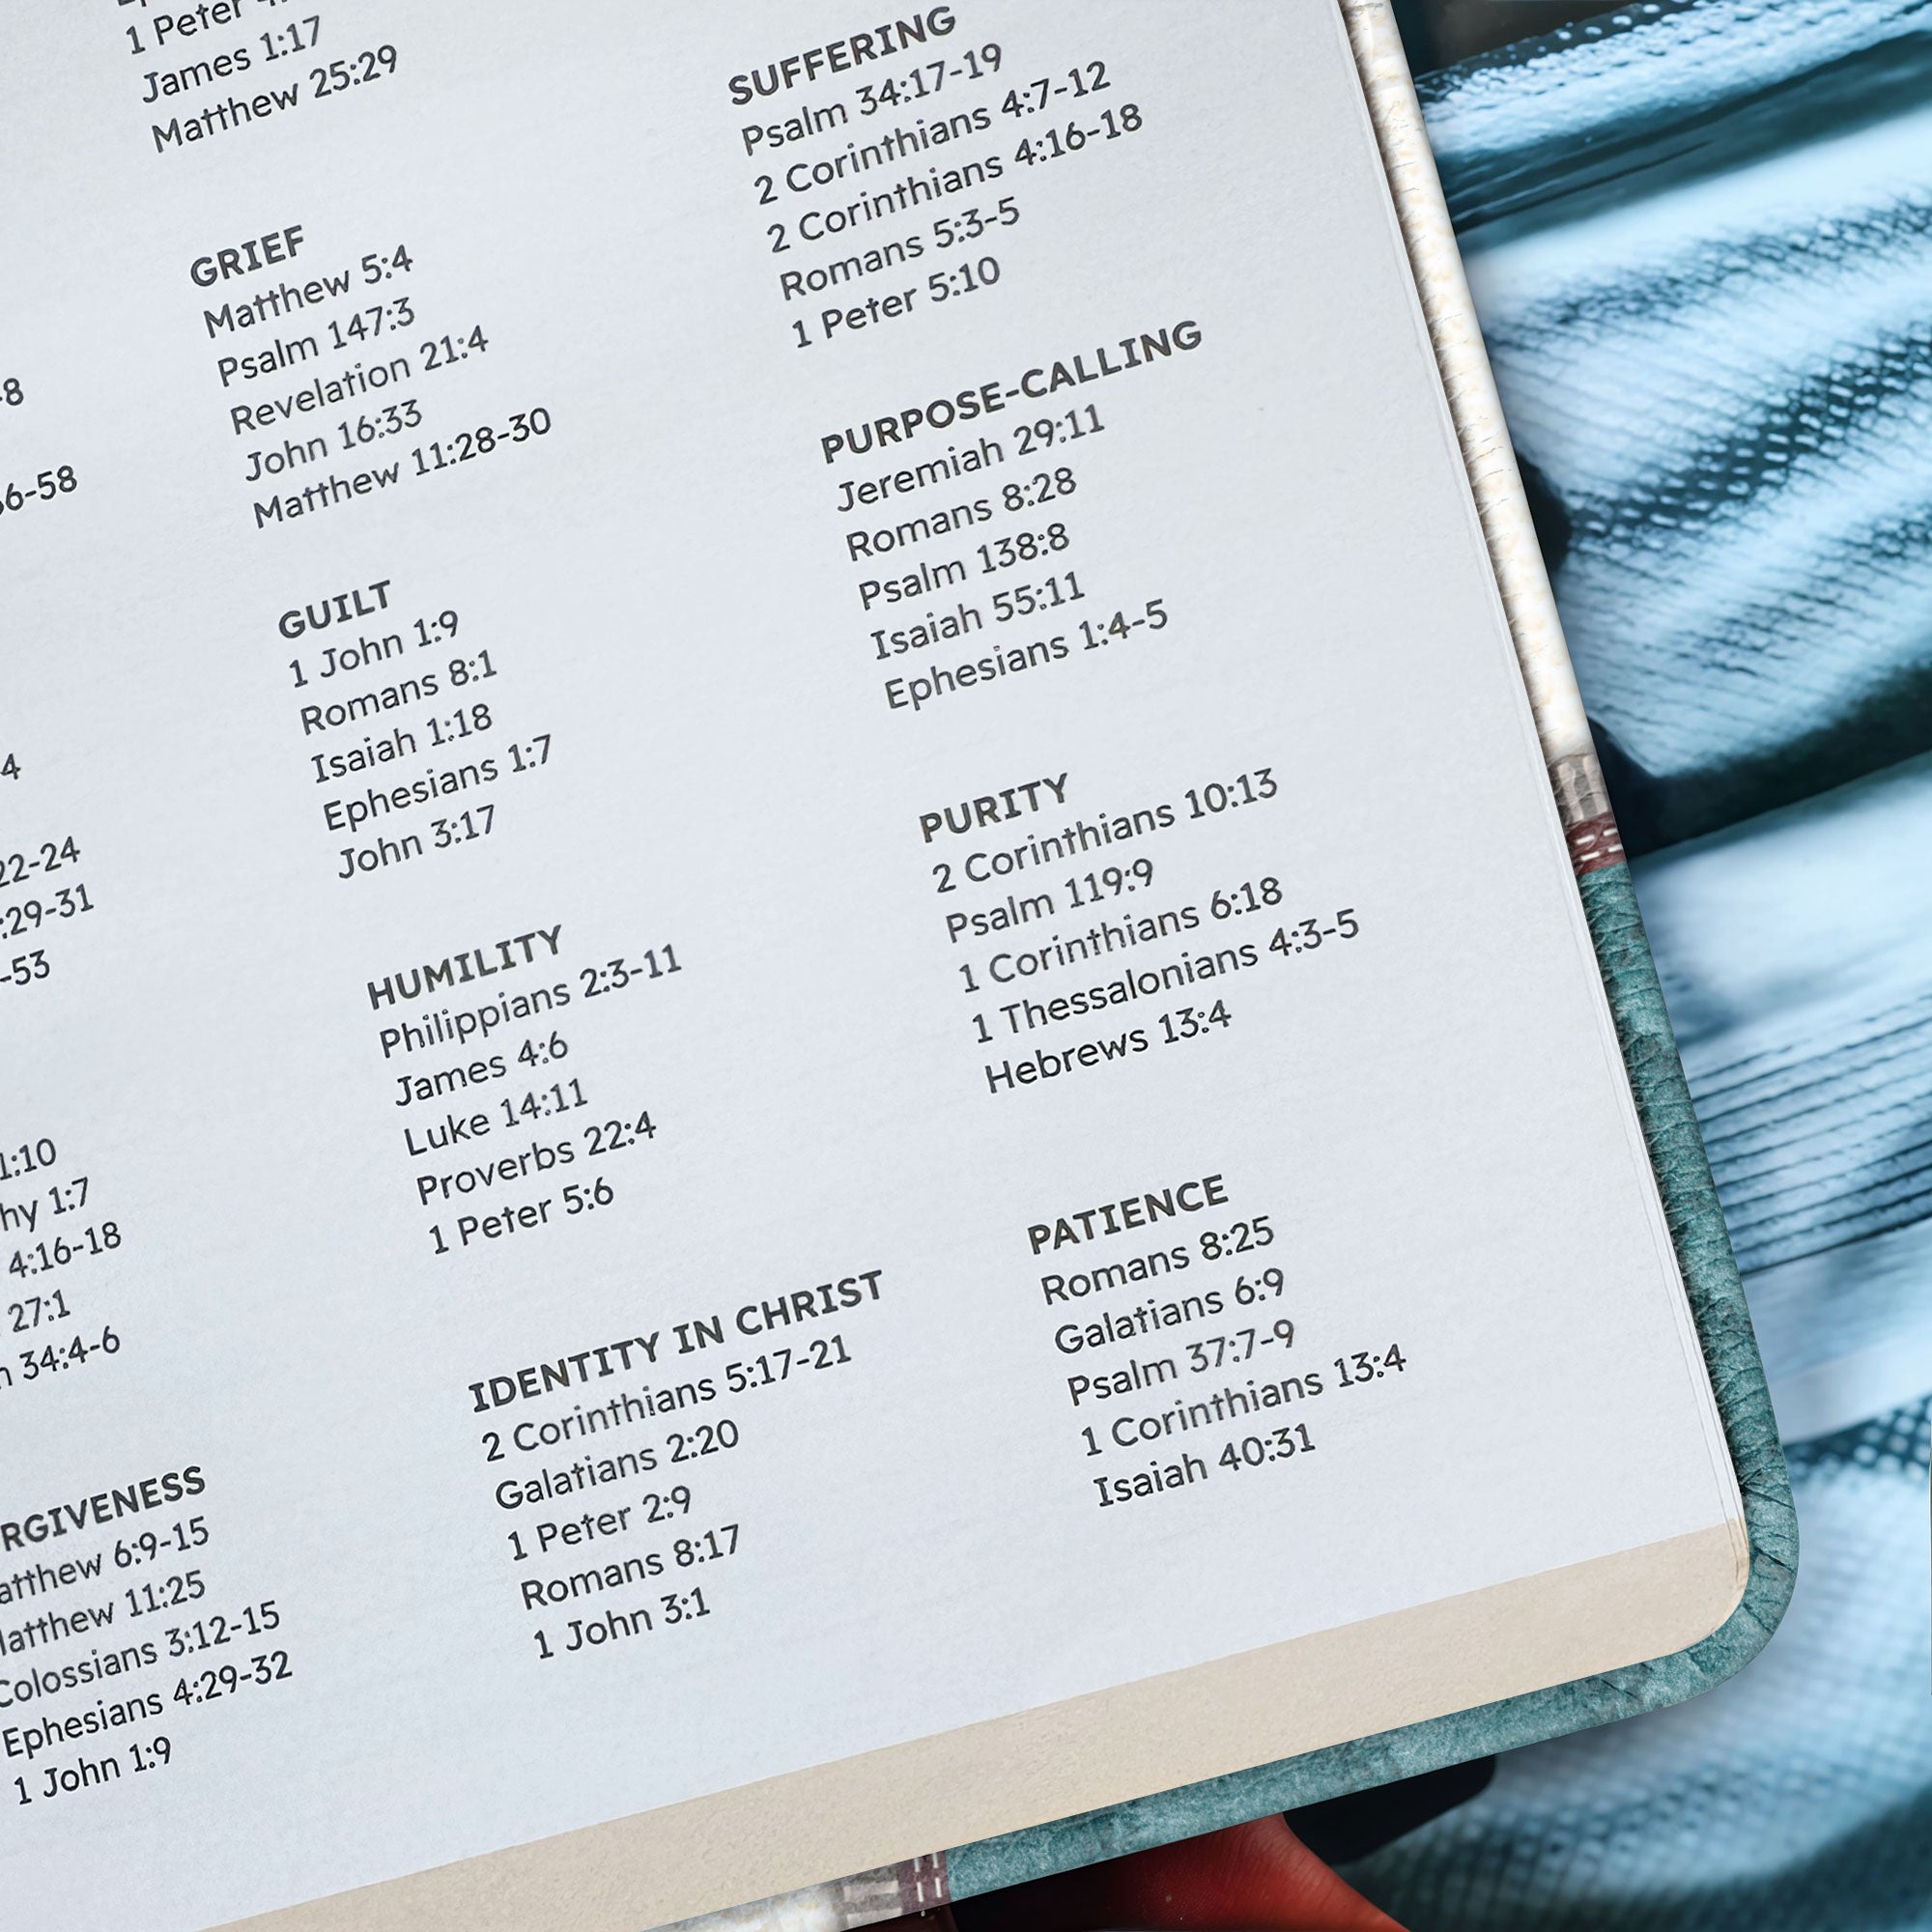 -8
6-58
4
22-24
:29-31
-53
1:10
hy 1:7
4:16-18
27:1
34:4-6
RGIVENESS
atthew 6:9-15
atthew 11:25
Colossians 3:12-15
Ephesians 4:29-32
1 John 1:9
1 Peter
James 1:17
Matthew 25:29
GRIEF
Matthew 5:4
Psalm 147:3
Revelation 21:4
John 16:33
Matthew 11:28-30
GUILT
1 John 1:9
Romans 8:1
Isaiah 1:18
Ephesians 1:7
John 3:17
HUMILITY
Philippians 2:3-11
James 4:6
Luke 14:11
Proverbs 22:4
1 Peter 5:6
IDENTITY IN CHRIST
2 Corinthians 5:17-21
Galatians 2:20
1 Peter 2:9
Romans 8:17
1 John 3:1
SUFFERING
Psalm 34:17-19
2 Corinthians 4:7-12
2 Corinthians 4:16-18
Romans 5:3-5
1 Peter 5:10
PURPOSE-CALLING
Jeremiah 29:11
Romans 8:28
Psalm 138:8
Isaiah 55:11
Ephesians 1:4-5
PURITY
2 Corinthians 10:13
Psalm 119:9
1 Corinthians 6:18
1 Thessalonians 4:3-5
Hebrews 13:4
PATIENCE
Romans 8:25
Galatians 6:9
Psalm 37:7-9
1 Corinthians 13:4
Isaiah 40:31